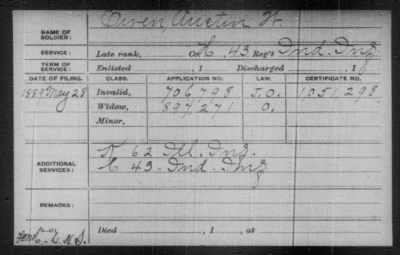 NAME OF SOLDIER: Owen, Austin W.
SERVICE: Late rank, Co. C, 43 Reg't Ind. Inf.
TERM OF SERVICE: Enlisted , 1 Discharged , 1
DATE OF FILING. CLASS. APPLICATION NO. LAW. CERTIFICATE NO.
1889 May 28 Invalid, 706,798 J.O. 1,051,298
Widow, 897,271 O.
Minor,
ADDITIONAL SERVICES: K 62 Ill. Inf.
C 43 Ind. Inf.
REMARKS:
Died , 1 , at